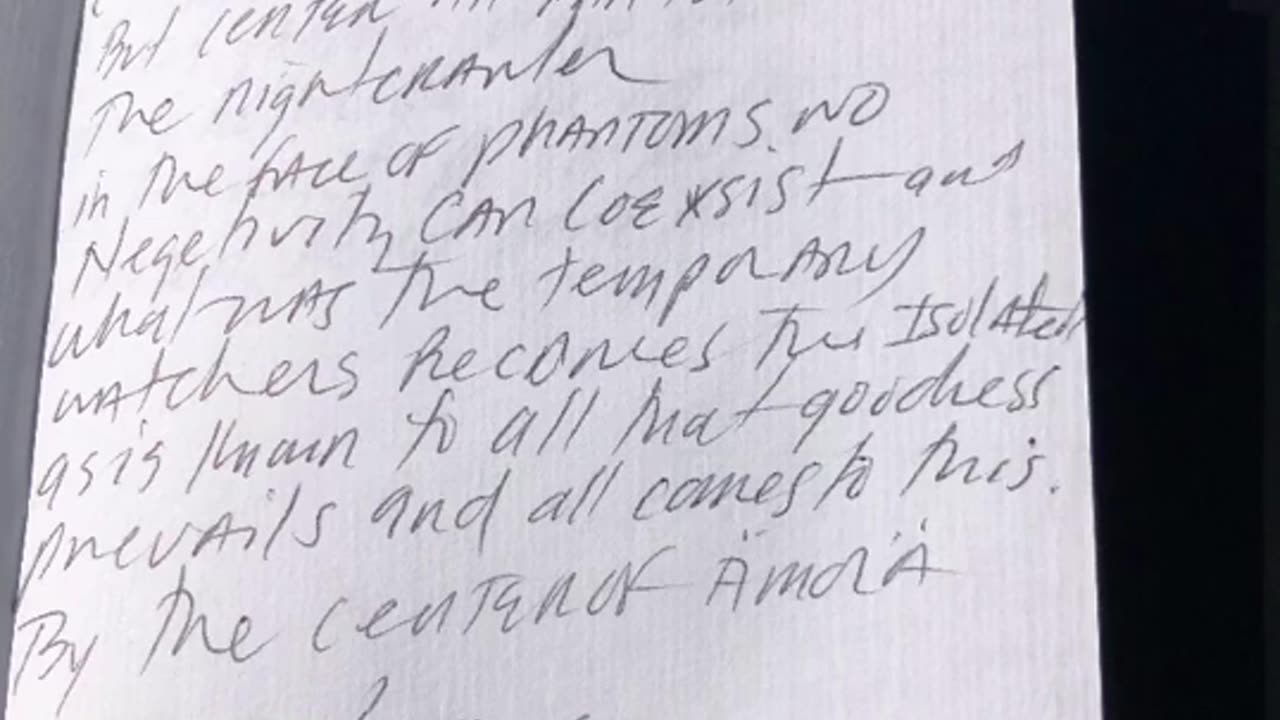 But center
The nightcrawler
in the face of phantoms. NO
Negetivity CAN COExsist and
what was the temporary
watchers Becomes the Isolated
as is known to all that goodness
prevails and all comes to this.
By the CENTER OF ÄmorÄ